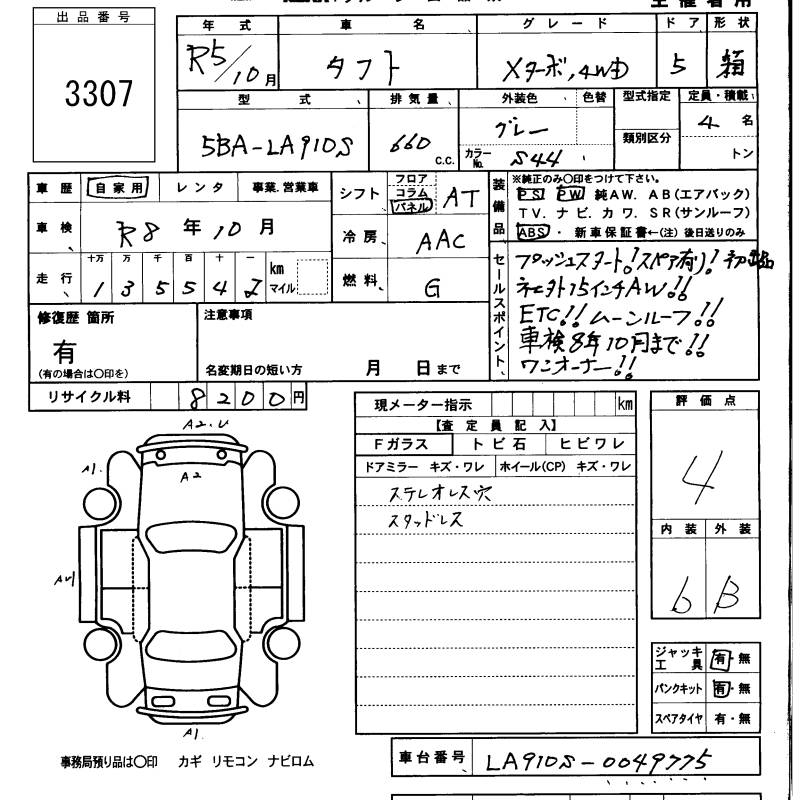 出品番号
3307
年式 車名 グレード ドア 形状
R5/10月 タフト Xターボ,4WD 5 箱
型式 排気量 外装色 色替 型式指定 定員・積載
5BA-LA910S 660 c.c. グレー 類別区分 4名
カラーNo. S44 トン
車歴 自家用 レンタ 事業.営業車
シフト フロア コラム パネル AT
装備品 ※純正のみ〇印をつけて下さい。
PS PW 純AW. AB(エアバック)
TV. ナビ. カワ. SR(サンルーフ)
ABS・新車保証書←(注) 後日送りのみ
車検 R8年10月
冷房 AAC
走行 十万 万 千 百 十 一 km マイル
13554
燃料 G
セールスポイント
プッシュスタート!スペア有り!
社外15インチAW!!
ETC!!ムーンルーフ!!
車検8年10月まで!!
ワンオーナー!!
修復歴 箇所
有
(有の場合は〇印を)
注意事項
名変期日の短い方 月 日まで
リサイクル料 8200円
現メーター指示 km
【査定員記入】
Fガラス トビ石 ヒビワレ
ドアミラー キズ・ワレ ホイール(CP) キズ・ワレ
ステレオレス穴
スタッドレス
評価点
4
内装 外装
b B
ジャッキ工具 有・無
パンクキット 有・無
スペアタイヤ 有・無
A2.U
A1.
A2
A1.
事務局預り品は〇印 カギ リモコン ナビロム
車台番号 LA910S-0049775